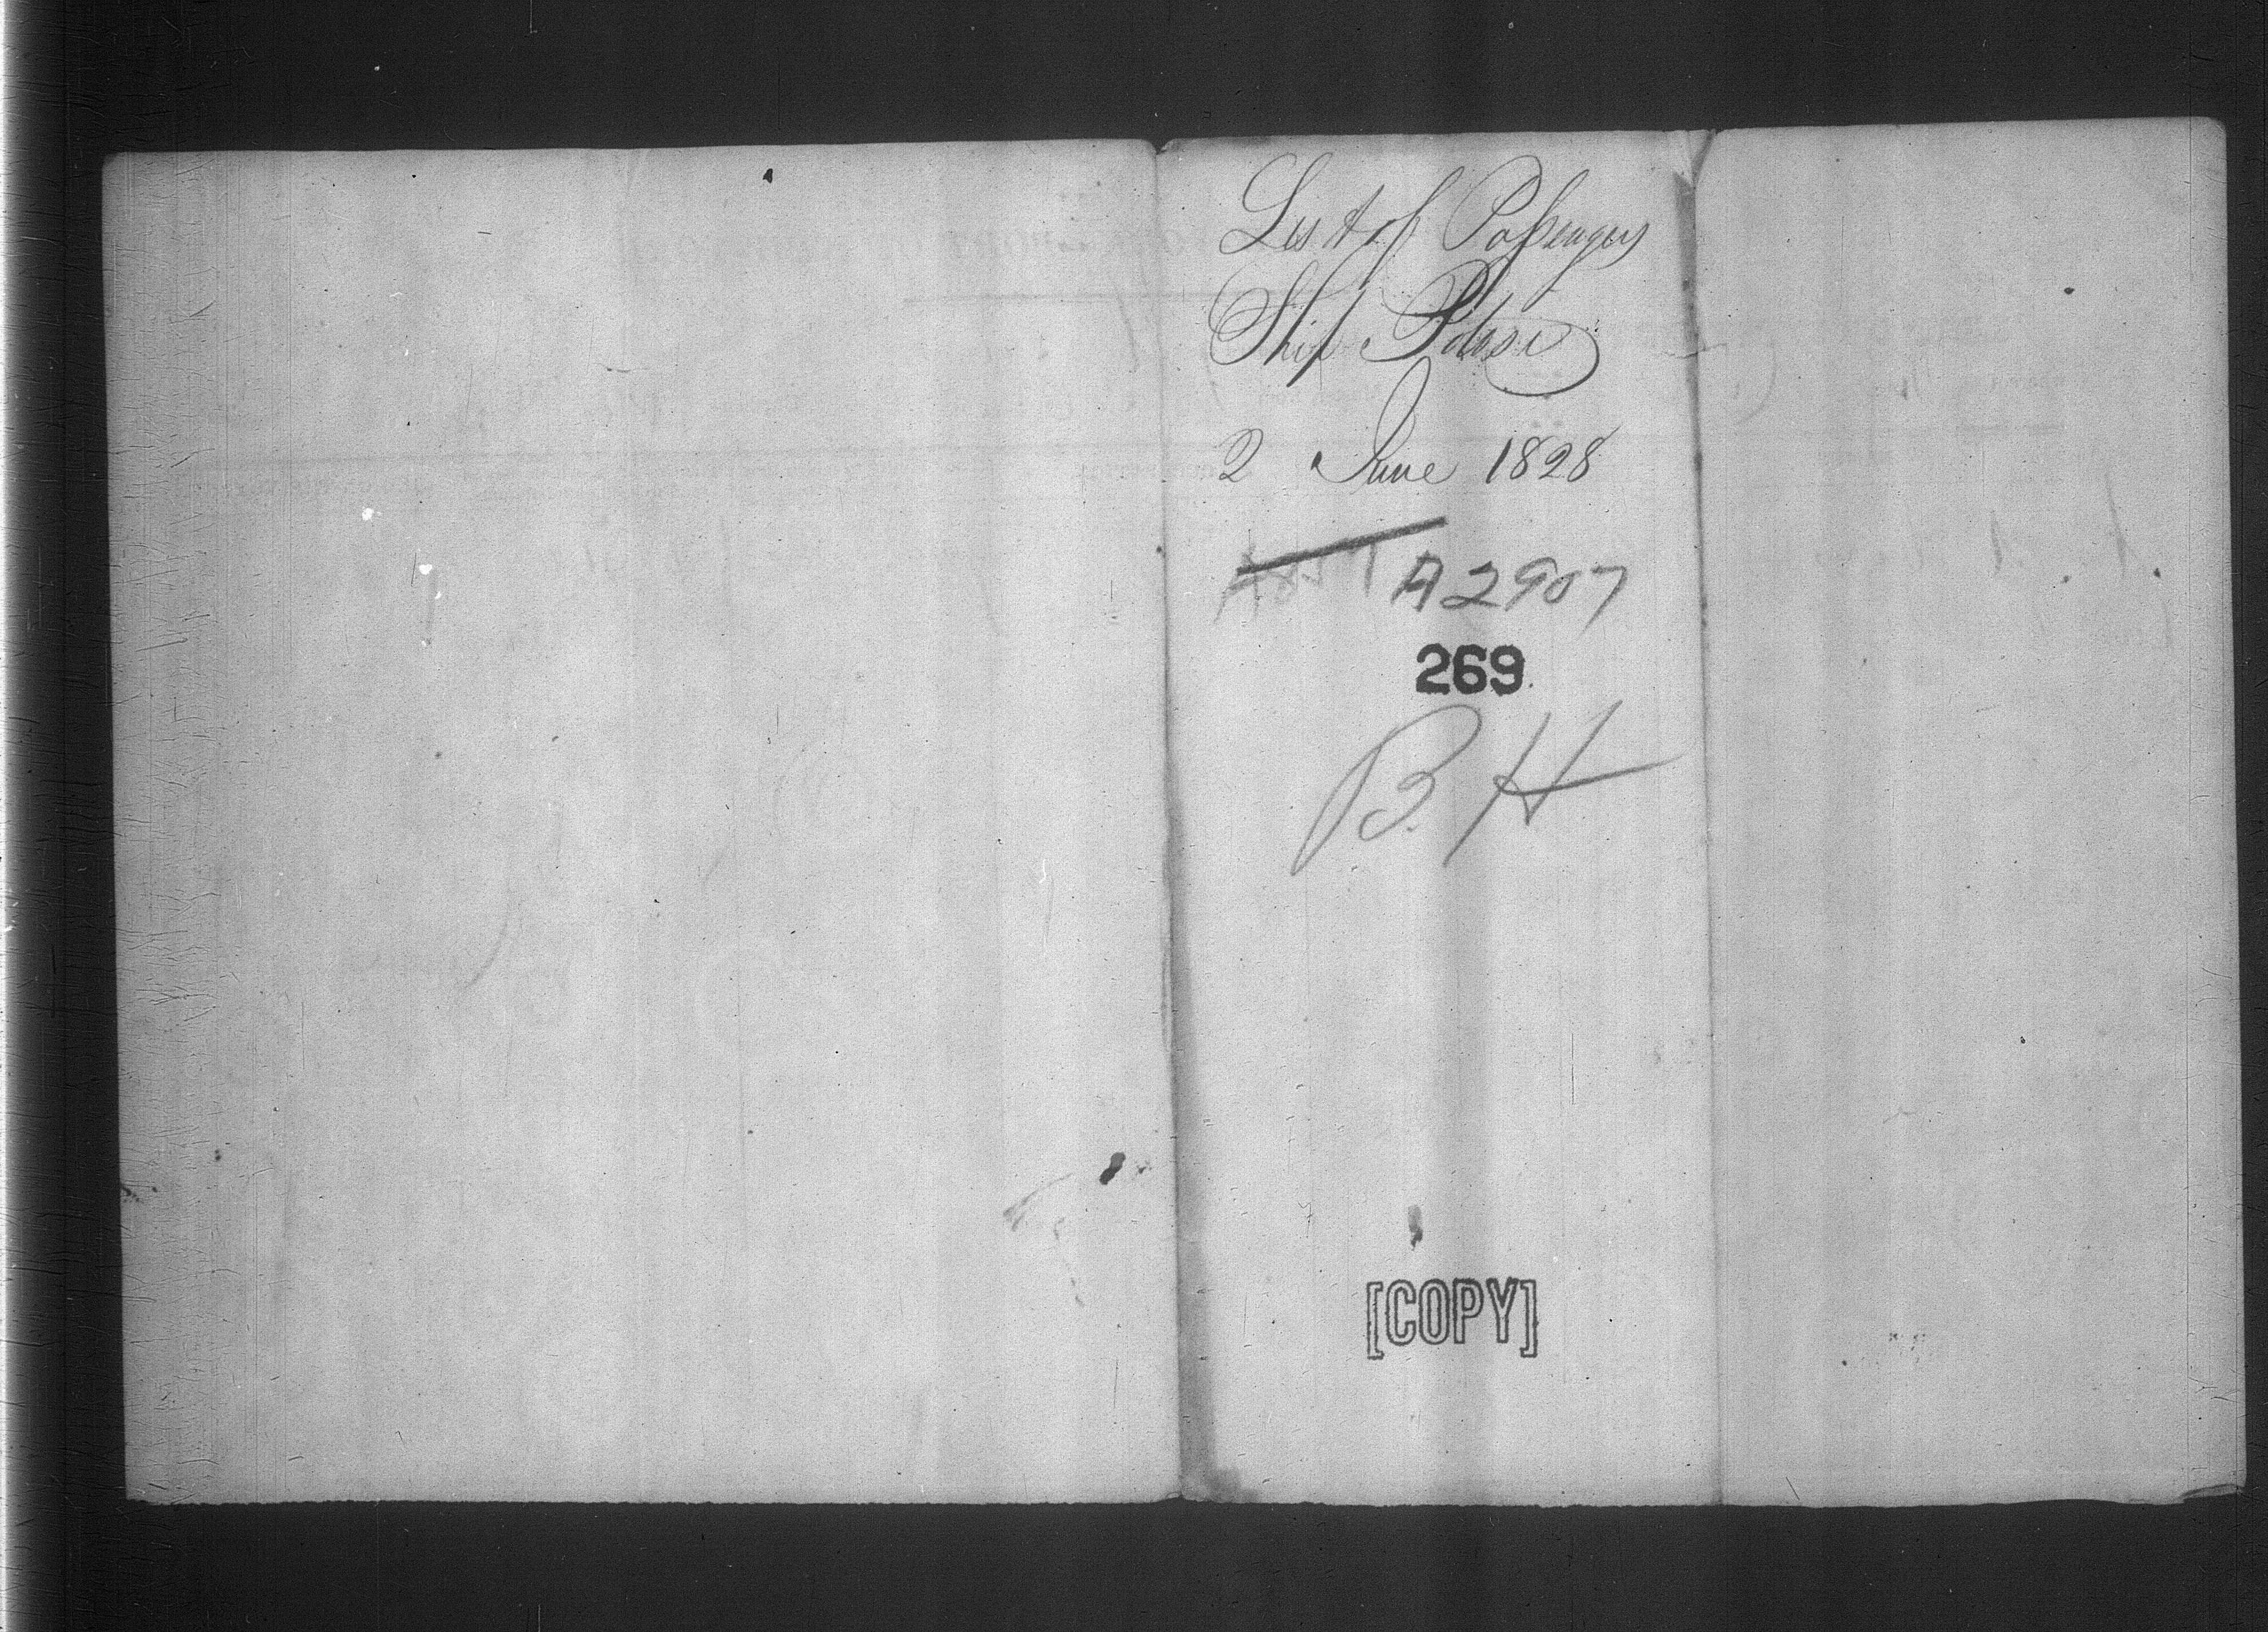 List of Passengers
Ship Potosi
2 June 1828
A2907
269
B. H
[COPY]